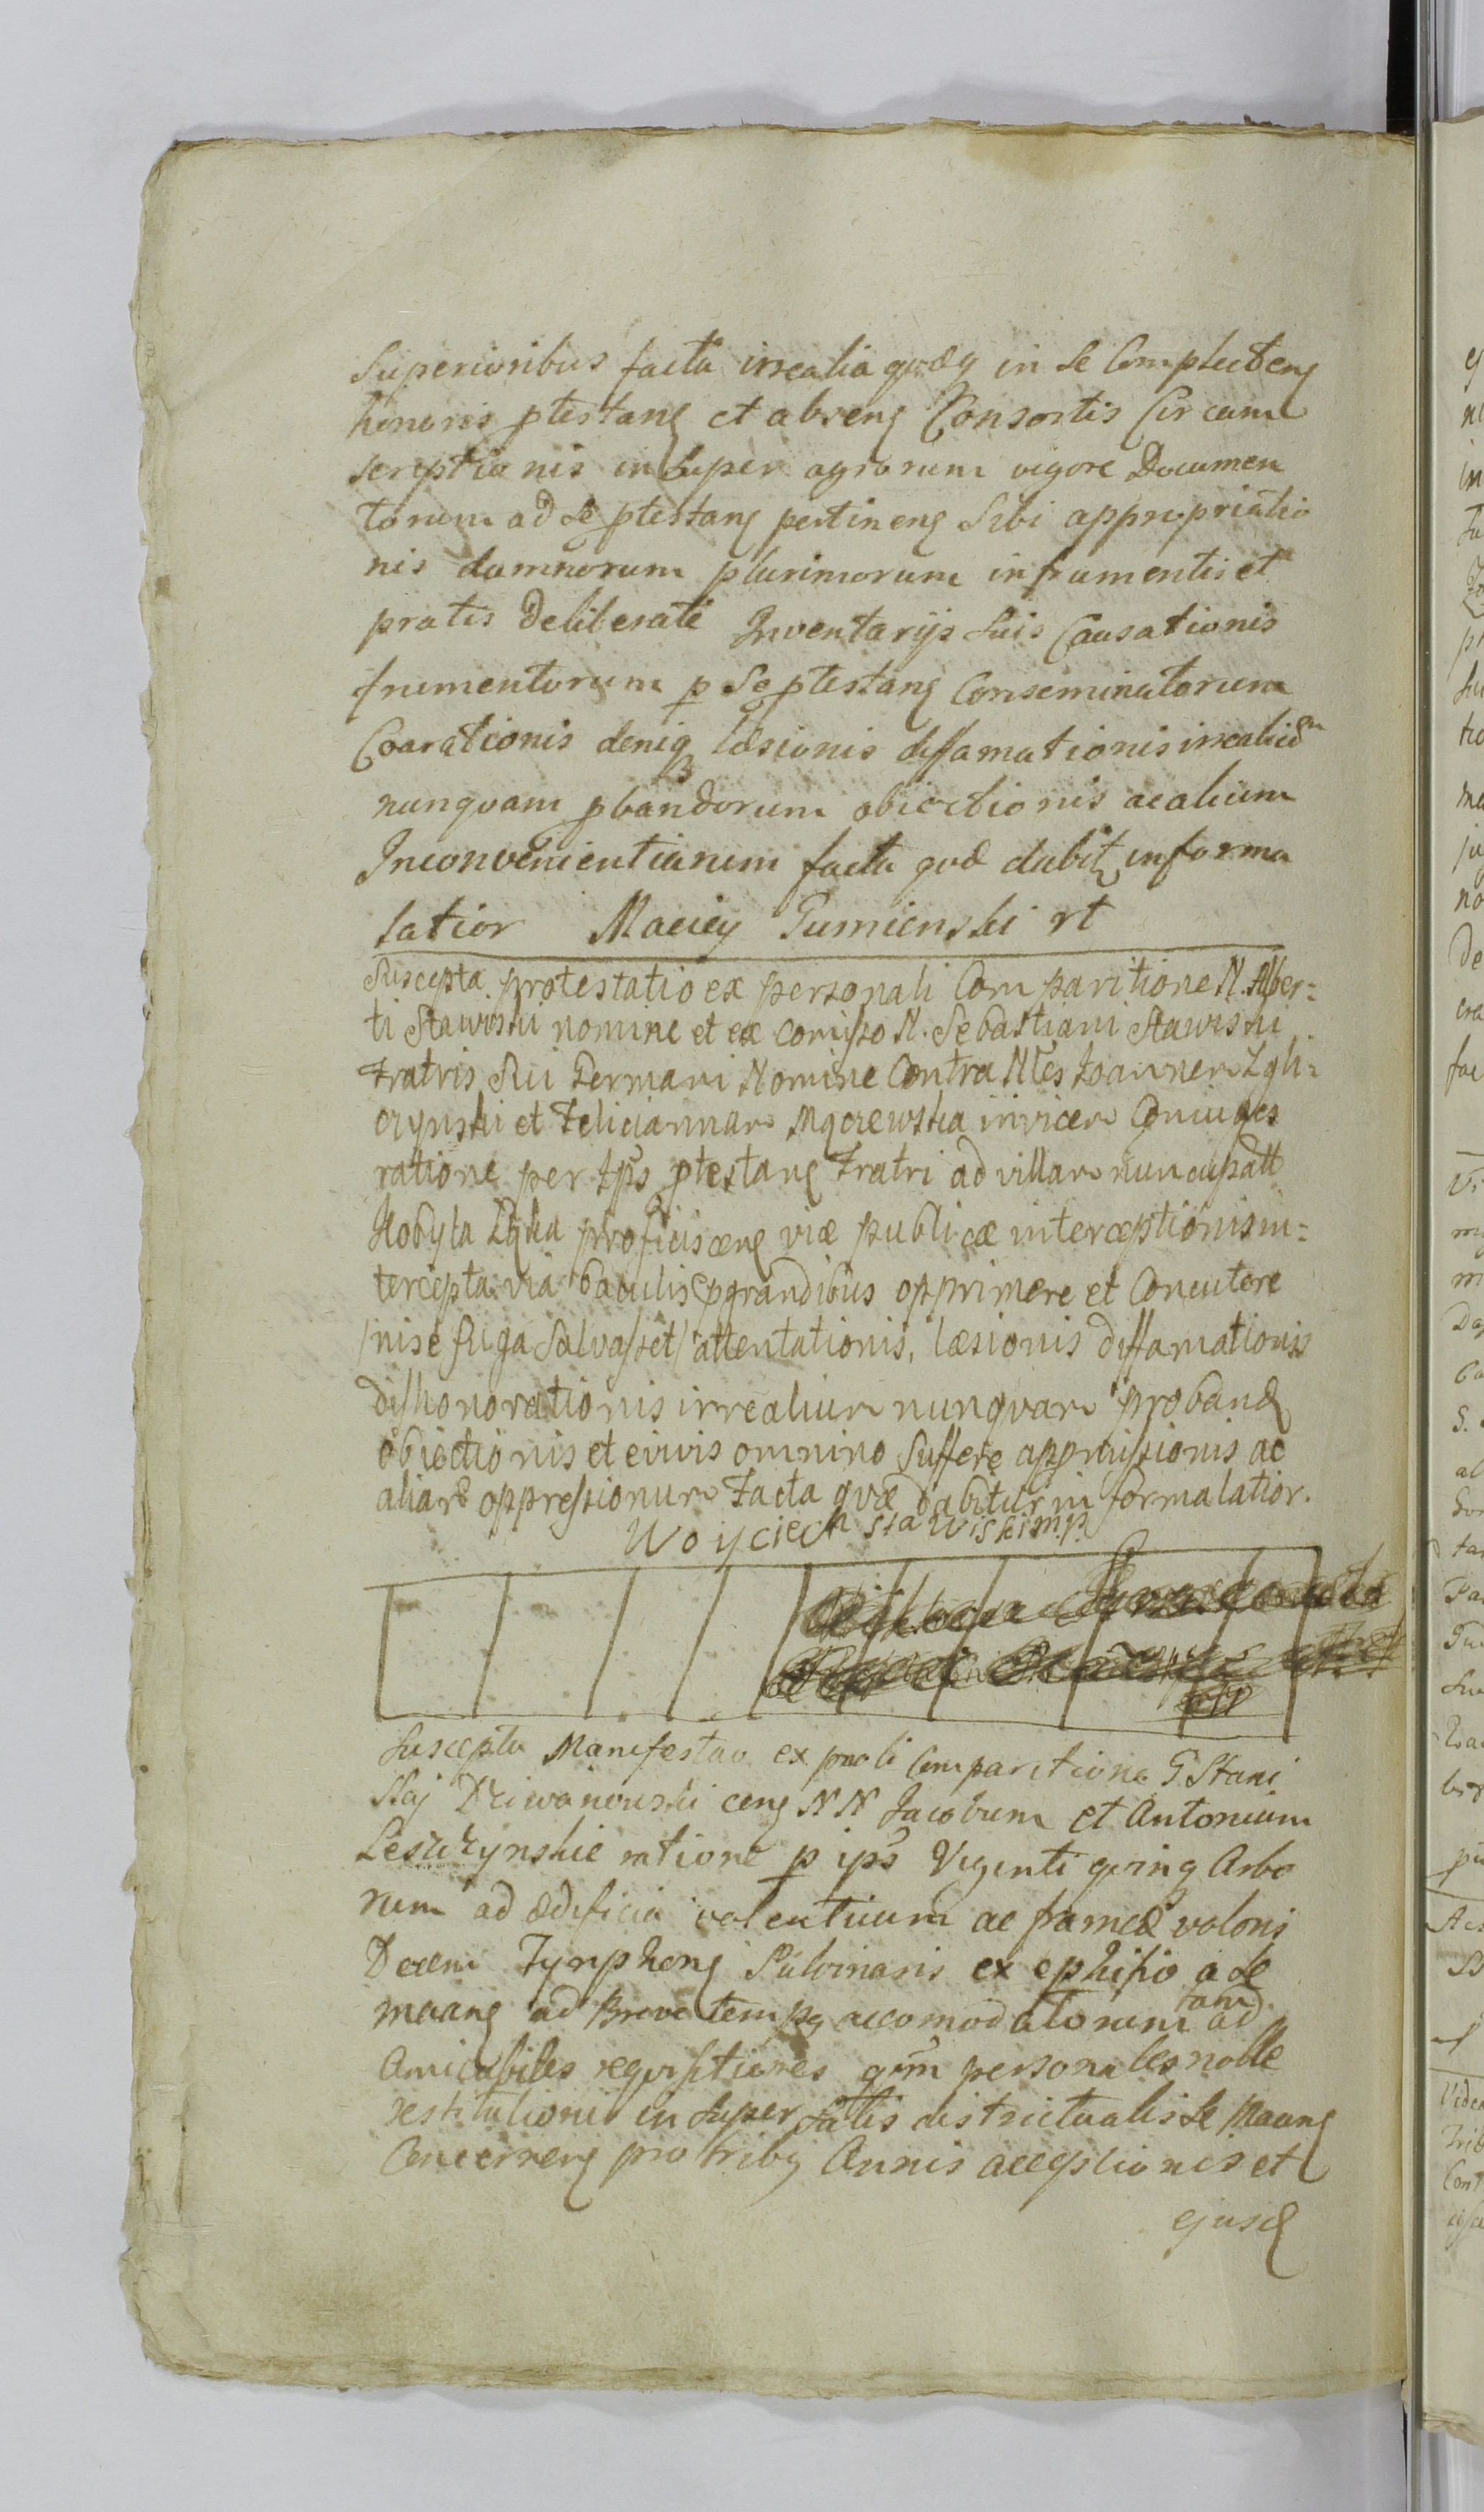 Superioribus facta irrealia quæq in se Complecteng
honoris ptestang et abseng Consortis Circum
scriptionis insuper agrorum vigore Documen
torum ad se ptestang pertineng Sibi appropriatio
nis damnorum plurimorum in frumentis et
pratis Deliberate Inventarijs suis Causationis
frumentorum p Se ptestang Conseminatorum
Coarationis deniq læsionis diffamationis irrealium
nunquam pbandorum obiectionis ac alium
Inconvenientiarum facta quæ dabit informa
latior Maciey Gumienski rt
Suscepta protestatio ex personali Comparitione N. Alber=
ti Stawiski nomine et ex comisso N. Sebastiani Stawiski
Fratris Sui Germani Nomine Contra Nles Joannem Zgli=
czynski et Feliciannam Mączewska invicem Coniuges
ratione per Ips ptestang Fratri ad villam nuncupatt
Kobyla Łąka proficisceng viæ publicæ interceptionis in=
tercepta via baculis pgrandibus opprimere et Concutere
/nisi fuga salvasset/ attentationis, læsionis diffamationis
dishonorationis irrealium nunqvam proband
obiectionis et eivis omnino suffere appromissionis ac
aliar oppressionum Facta qvæ dabitur in forma latior.
Woyciech Stawiski mp.
Suscepta Manifestao ex prnali Comparitione G Stani
slaj Dziewanowski ceng NN Jacobum et Antonium
Leszczynskie ratione p ips Viginti quinq Arbo
rum ad ædificia valentium ac frameæ valoris
Decem Tynphong Pulvinaris ex ephipio a se
maang ad Breve temps accomodatorum tam ad
Amicabiles requisitiones qum personales nolle
restitutionis insuper Salis districtualis se Maang
Concerneng pro tribg Annis acceptionis et
ejusd